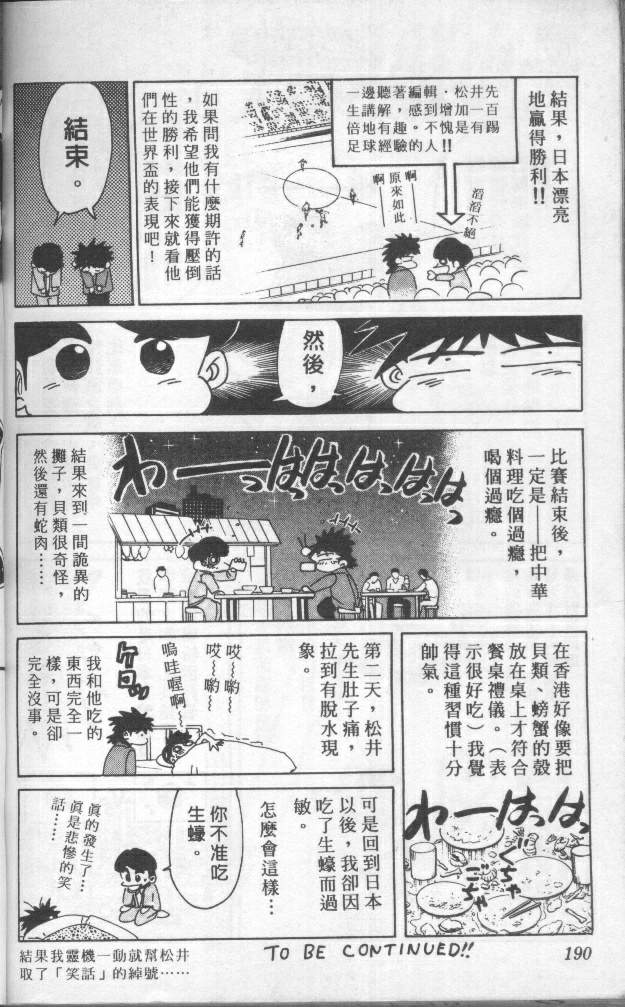 結果，日本漂亮
地贏得勝利!!
一邊聽著編輯．松井先
生講解，感到增加一百
倍地有趣。不愧是有踢
足球經驗的人!!
滔滔不絕
啊
原來如此
啊
如果問我有什麼期許的話
，我希望他們能獲得壓倒
性的勝利，接下來就看他
們在世界盃的表現吧！
結束。
然後，
比賽結束後，
一定是——把中華
料理吃個過癮，
喝個過癮。
わーっはっはっはっはっはっ
結果來到一間詭異的
攤子，貝類很奇怪，
然後還有蛇肉……
在香港好像要把
貝類、螃蟹的殼
放在桌上才符合
餐桌禮儀。（表
示很好吃）我覺
得這種習慣十分
帥氣。
わーはっはっ
ぐちゃ
ごちゃ
第二天，松井
先生肚子痛，
拉到有脫水現
象。
哎～喲～
哎～喲～
嗚哇喔啊～
ケロッ
我和他吃的
東西完全一
樣，可是卻
完全沒事。
可是回到日本
以後，我卻因
吃了生蠔而過
敏。
怎麼會這樣…
你不准吃
生蠔。
真的發生了…
真是悲慘的笑
話……
結果我靈機一動就幫松井
取了「笑話」的綽號……
TO BE CONTINUED!!
190